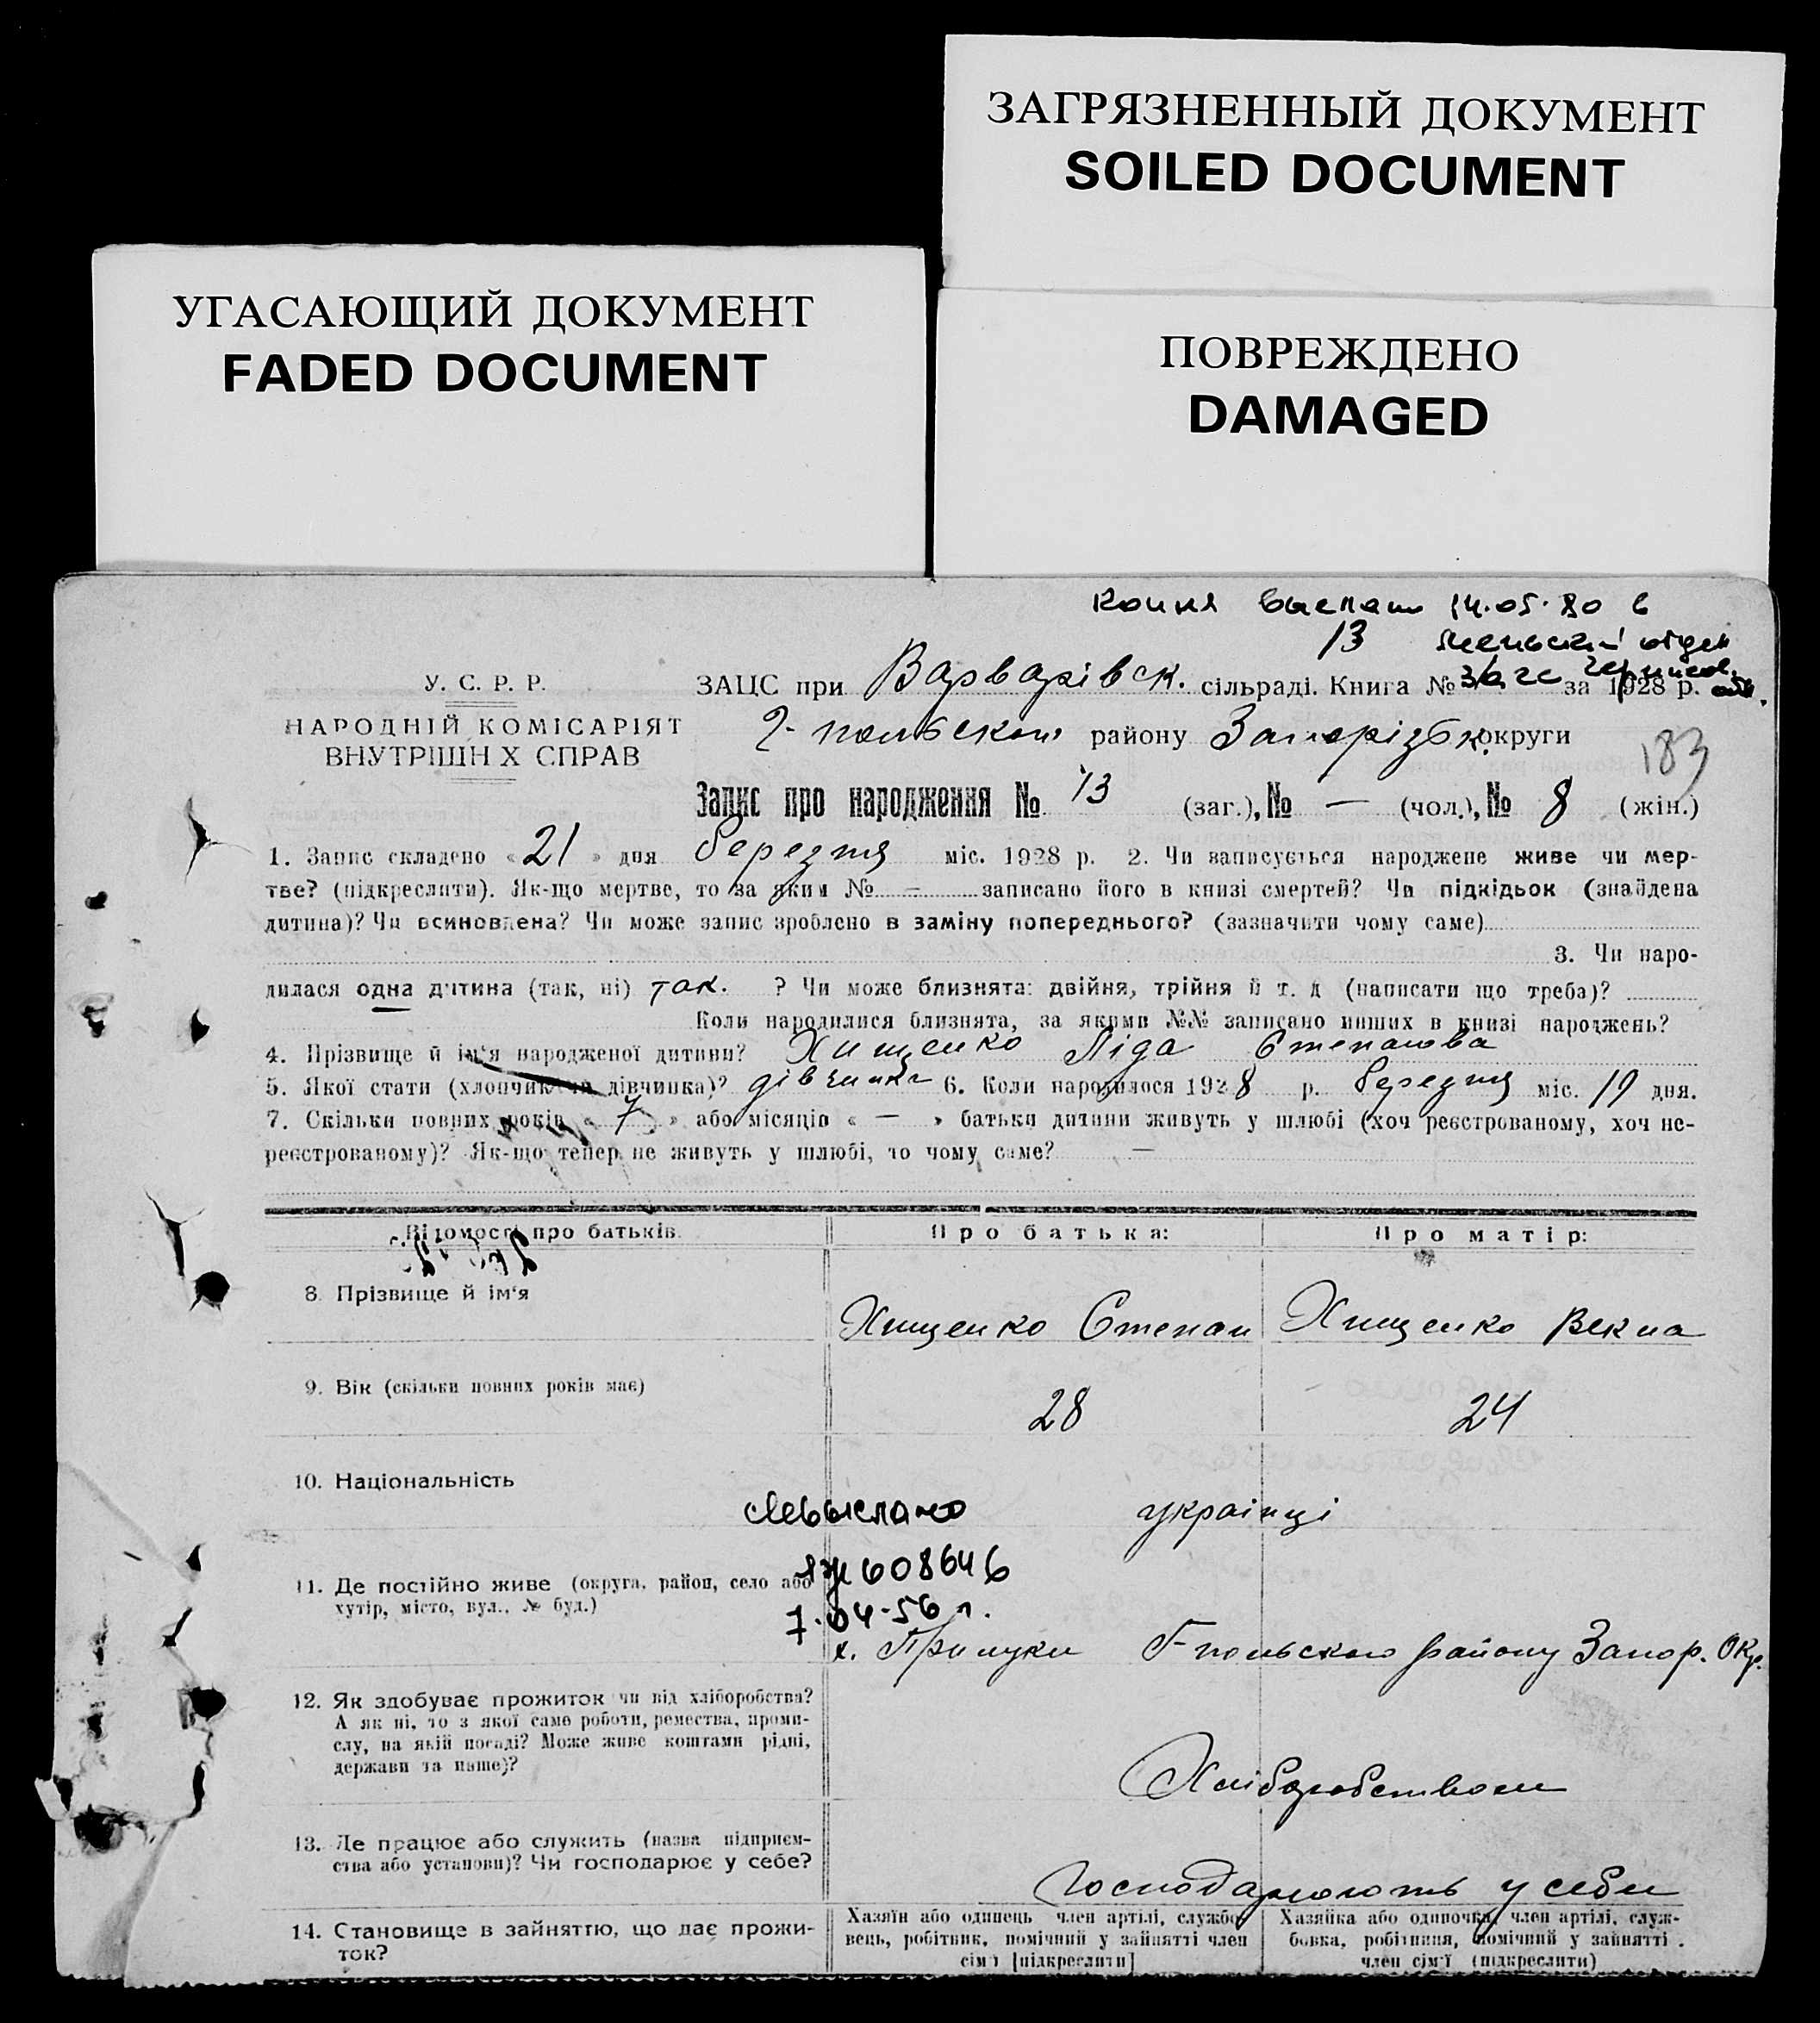 ЗАГРЯЗНЕННЫЙ ДОКУМЕНТ
SOILED DOCUMENT
УГАСАЮЩИЙ ДОКУМЕНТ
FADED DOCUMENT
ПОВРЕЖДЕНО
DAMAGED
Копия выслана 14.05.80 в
13 отдел
загс
У. С. Р. Р.
НАРОДНІЙ КОМІСАРІЯТ
ВНУТРІШН Х СПРАВ
ЗАЦС при Варварівск. сільраді. Книга № за 1928 р.
Г-польского району Запорізьк. округи
183
Запис про народження № 13 (заг.), № — (чол.), № 8 (жін.)
1. Запис складено « 21 » дня березня міс. 1928 р. 2. Чи записується народжене живе чи мер-
тве? (підкреслити). Як-що мертве, то за яким № — записано його в книзі смертей? Чи підкідьок (знайдена
дитина)? Чи всиновлена? Чи може запис зроблено в заміну попереднього? (зазначити чому саме)
3. Чи наро-
дилася одна дитина (так, ні) так. ? Чи може близнята: двійня, трійня й т. д (написати що треба)?
Коли народилися близнята, за якими №№ записано инших в книзі народжень?
4. Прізвище й ім'я народженої дитини? Хищенко Ліда Степанова
5. Якої стати (хлопчик чи дівчинка)? дівчинка 6. Коли народилося 1928 р. березня міс. 19 дня.
7. Скільки повних років « 7 » або місяців « — » батьки дитини живуть у шлюбі (хоч реєстрованому, хоч не-
реєстрованому)? Як-що тепер не живуть у шлюбі, то чому саме? —
Відомості про батьків.
Про батька:
Про матір:
8. Прізвище й ім'я
Хищенко Степан
Хищенко
9. Вік (скільки повних років має)
28
24
10. Національність
українці
11. Де постійно живе (округа, район, село або
хутір, місто, вул., № буд.)
608646
7.04-56 г.
х. Прилуки Г-польского району Запор. Окр.
12. Як здобуває прожиток чи від хліборобства?
А як ні, то з якої саме роботи, ремества, проми-
слу, на якій посаді? Може живе коштами рідні,
держави та инше)?
Хліборобством
13. Де працює або служить (назва підприєм-
ства або установи)? Чи господарює у себе?
Господарюють у себе
14. Становище в зайняттю, що дає прожи-
ток?
Хазяїн або одинець член артілі, службо-
вець, робітник, помічний у зайнятті член
сім'ї [підкреслити]
Хазяйка або одиночка, член артілі, служ-
бовка, робітниця, помічний у зайнятті
член сім'ї (підкреслити)